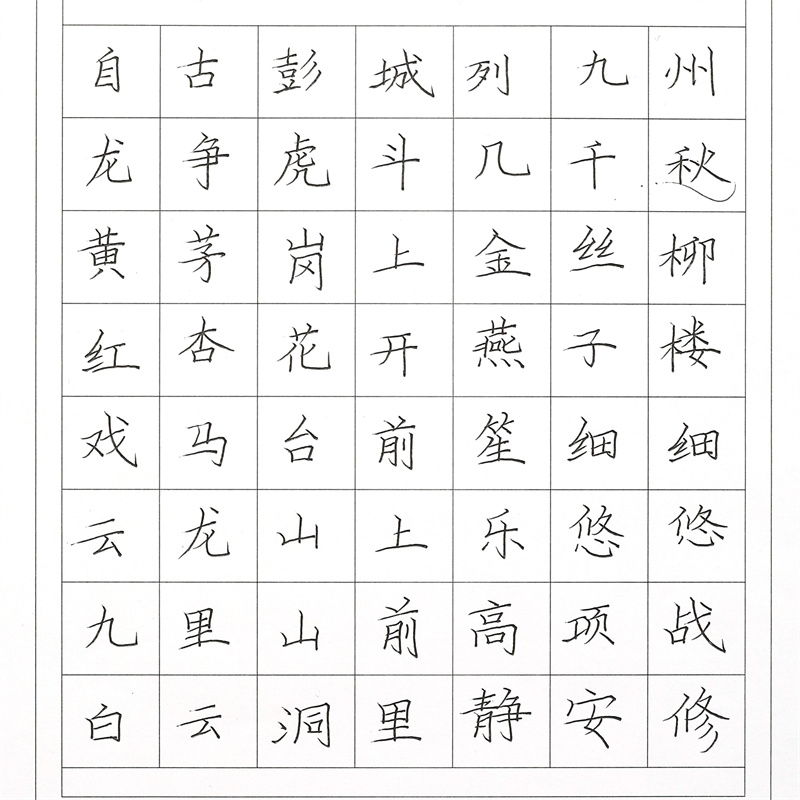 自古彭城列九州
龙争虎斗几千秋
黄茅岗上金丝柳
红杏花开燕子楼
戏马台前笙细细
云龙山上乐悠悠
九里山前高项战
白云洞里静安修